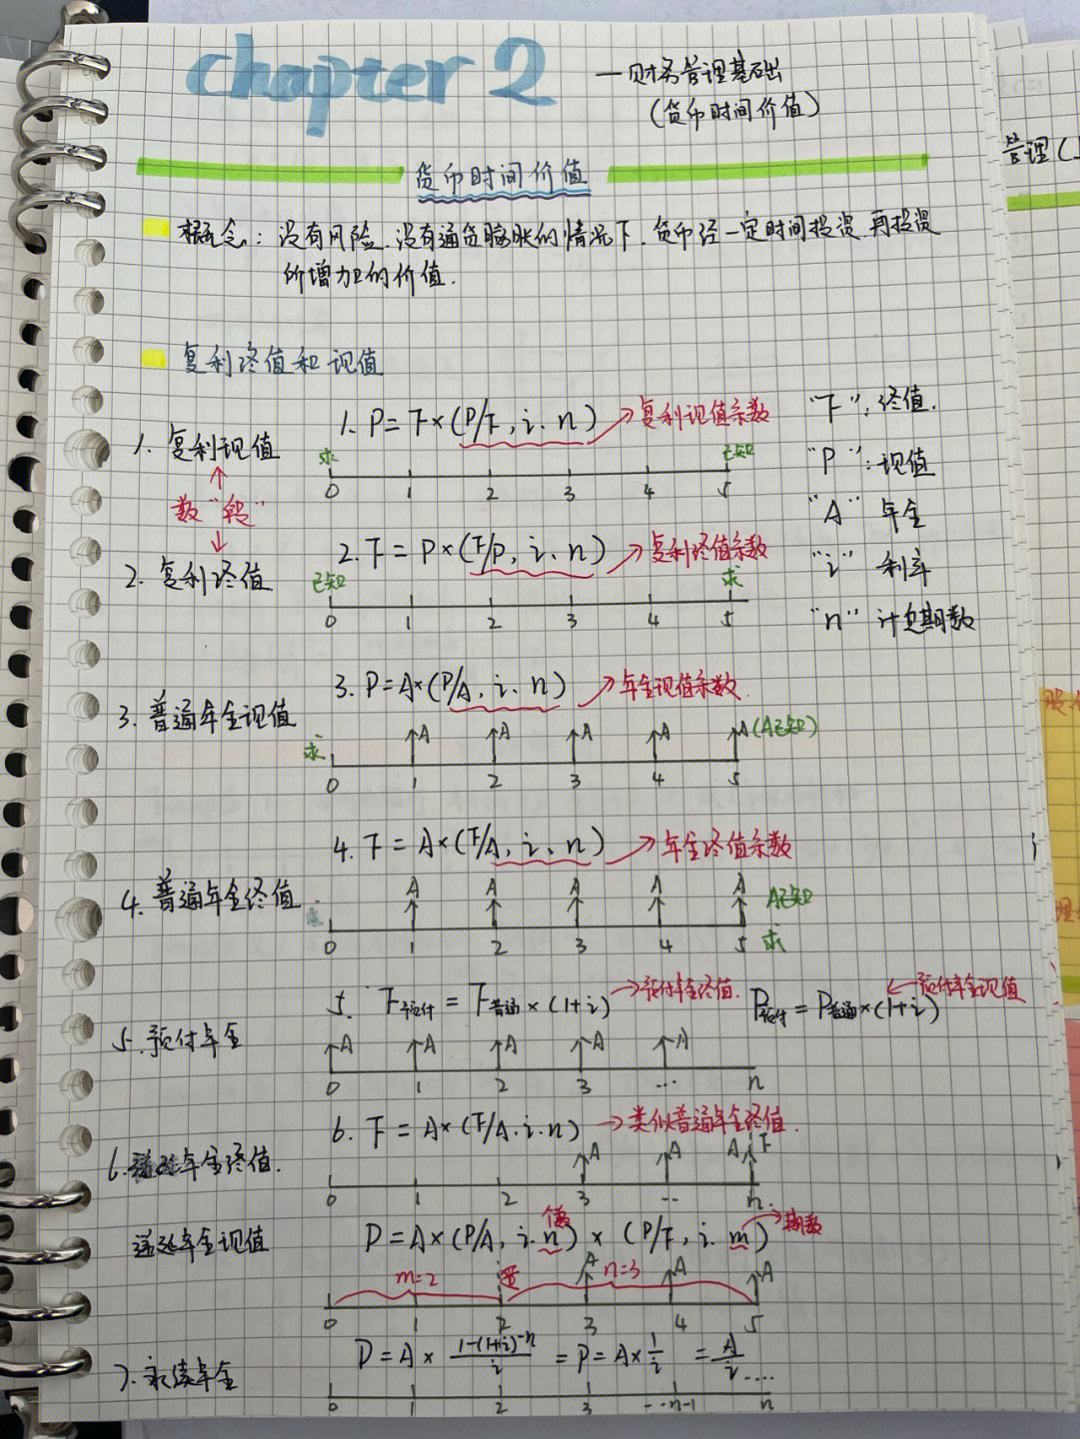 chapter 2
—财务管理基础
(货币时间价值)
管理(
货币时间价值
概念：没有风险、没有通货膨胀的情况下，货币经一定时间投资、再投资
所增加的价值.
复利终值和现值
1. P=F×(P/F, i、n) →复利现值系数
"F"：终值.
1、复利现值
求 已知
0 1 2 3 4 5
"P"：现值
数"段"
"A" 年金
2. F = P×(F/P, i、n) →复利终值系数
"i" 利率
2、复利终值
已知 求
0 1 2 3 4 5
"n" 计息期数
3. P=A×(P/A, i、n) →年金现值系数
3. 普通年金现值
求 A A A A A(A已知)
0 1 2 3 4 5
4. F = A×(F/A, i、n) →年金终值系数
4. 普通年金终值
A A A A A A已知
0 1 2 3 4 5 求
5. F预付 = F普通×(1+i) →预付年金终值. P预付=P普通×(1+i) ←预付年金现值
5. 预付年金
A A A A A
0 1 2 3 ... n
6. F = A×(F/A、i、n) →类似普通年金终值.
6. 递延年金终值.
A A A F
0 1 2 3 ... n
递延年金现值
P=A×(P/A, i、n) × (P/F, i、m) →期数
个数
m=2 n=3
A A A
0 1 2 3 4 5
P=A× 1-(1+i)^-n/i = P=A×1/i = A/i
7. 永续年金
....
0 1 2 3 --n-1 n